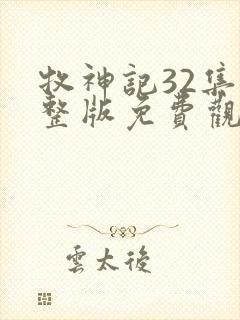 牧神記32集
整版免費觀
雲太後